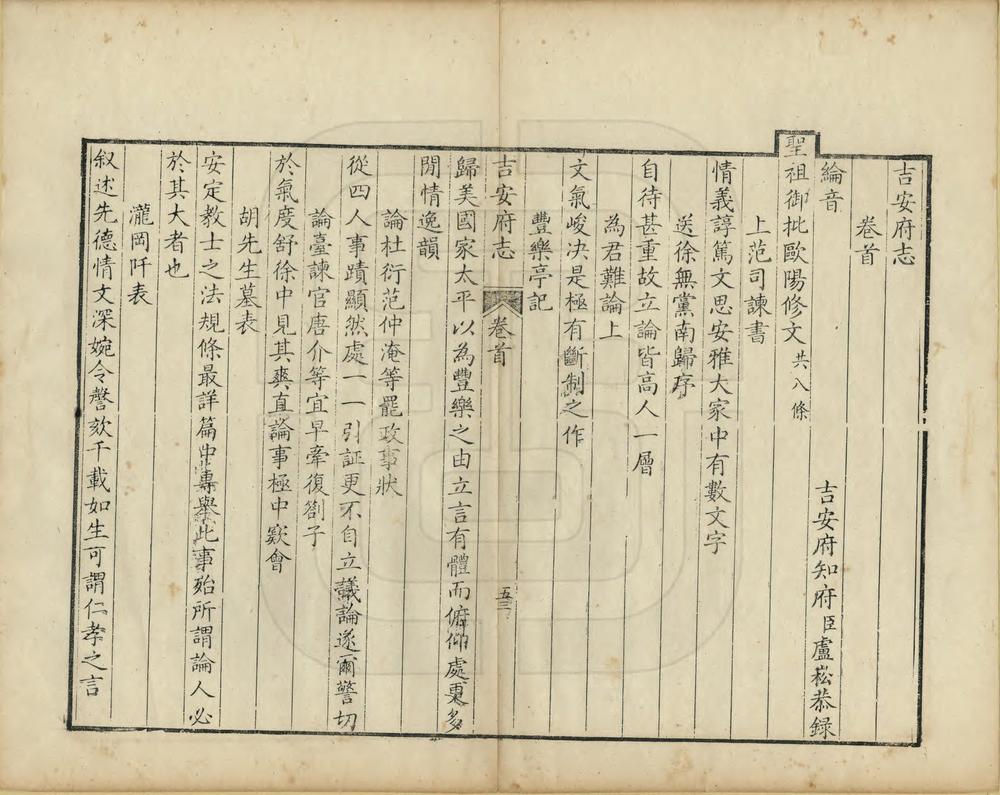 吉安府志
卷首
綸音　吉安府知府臣盧崧恭録
聖祖御批歐陽修文共八條
上范司諫書
情義諄篤文思安雅大家中有數文字
送徐無黨南歸序
自待甚重故立論皆高人一層
為君難論上
文氣峻決是極有斷制之作
豐樂亭記
吉安府志　卷首　五三
歸美國家太平以為豐樂之由立言有體而俯仰處更多
閒情逸韻
論杜衍范仲淹等罷政事狀
從四人事蹟顯然處一一引証更不自立議論遂爾警切
論臺諫官唐介等宜早牽復劄子
於氣度舒徐中見其爽直論事極中窾會
胡先生墓表
安定教士之法規條最詳篇中專舉此事殆所謂論人必
於其大者也
瀧岡阡表
叙述先德情文深婉令謦欬千載如生可謂仁孝之言